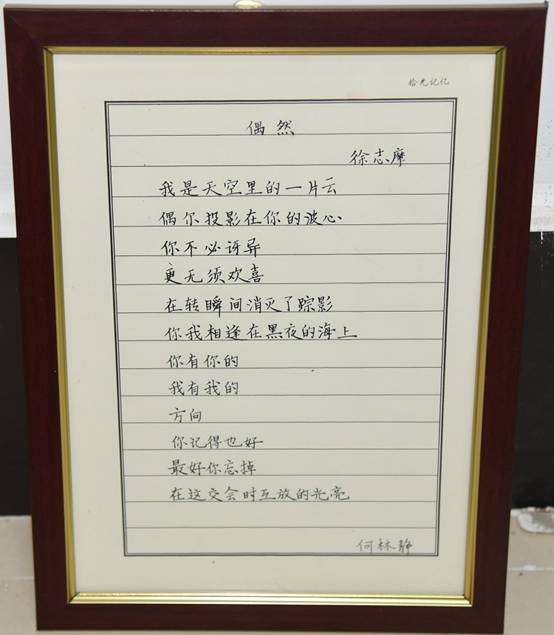 拾光记忆
偶然
徐志摩
我是天空里的一片云
偶尔投影在你的波心
你不必讶异
更无须欢喜
在转瞬间消灭了踪影
你我相逢在黑夜的海上
你有你的
我有我的
方向
你记得也好
最好你忘掉
在这交会时互放的光亮
何林静